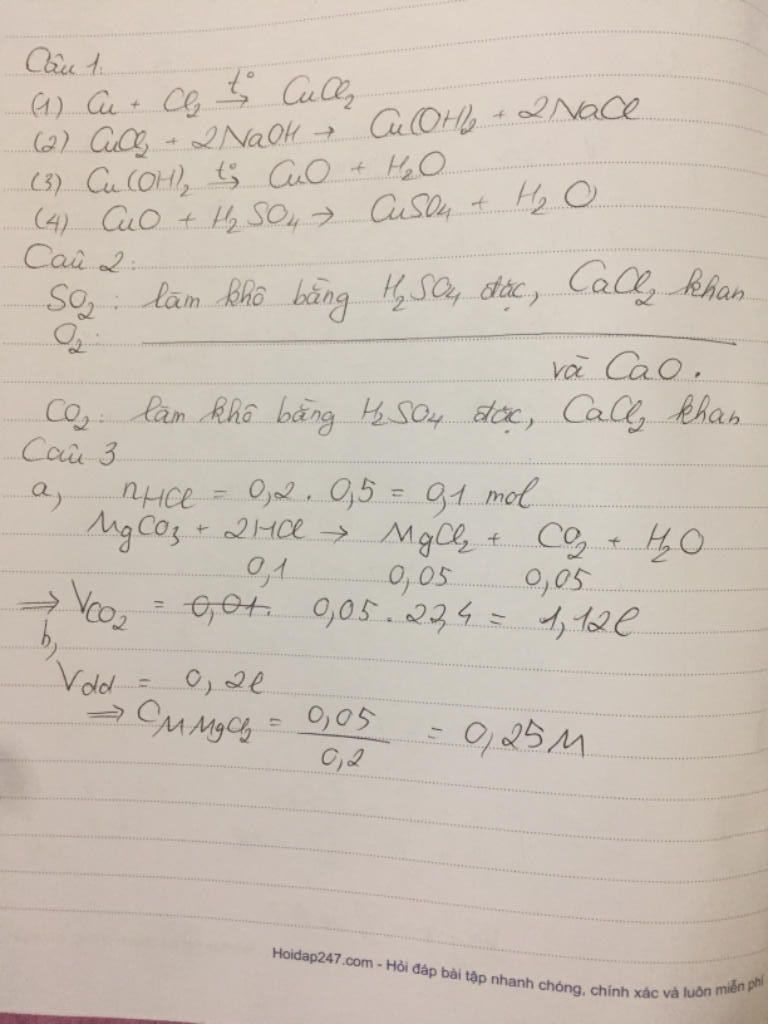 Câu 1.
(1) Cu + Cl₂ t°→ CuCl₂
(2) CuCl₂ + 2NaOH → Cu(OH)₂ + 2NaCl
(3) Cu(OH)₂ t°→ CuO + H₂O
(4) CuO + H₂SO₄ → CuSO₄ + H₂O
Câu 2:
SO₂: làm khô bằng H₂SO₄ đặc, CaCl₂ khan
O₂: ________
và CaO.
CO₂: làm khô bằng H₂SO₄ đặc, CaCl₂ khan
Câu 3
a, nHCl = 0,2 . 0,5 = 0,1 mol
MgCO₃ + 2HCl → MgCl₂ + CO₂ + H₂O
0,1 0,05 0,05
⇒ VCO₂ = 0,01. 0,05 . 22,4 = 1,12l
b,
Vdd = 0,2l
⇒ CM MgCl₂ = 0,05/0,2 = 0,25M
Hoidap247.com - Hỏi đáp bài tập nhanh chóng, chính xác và luôn miễn phí